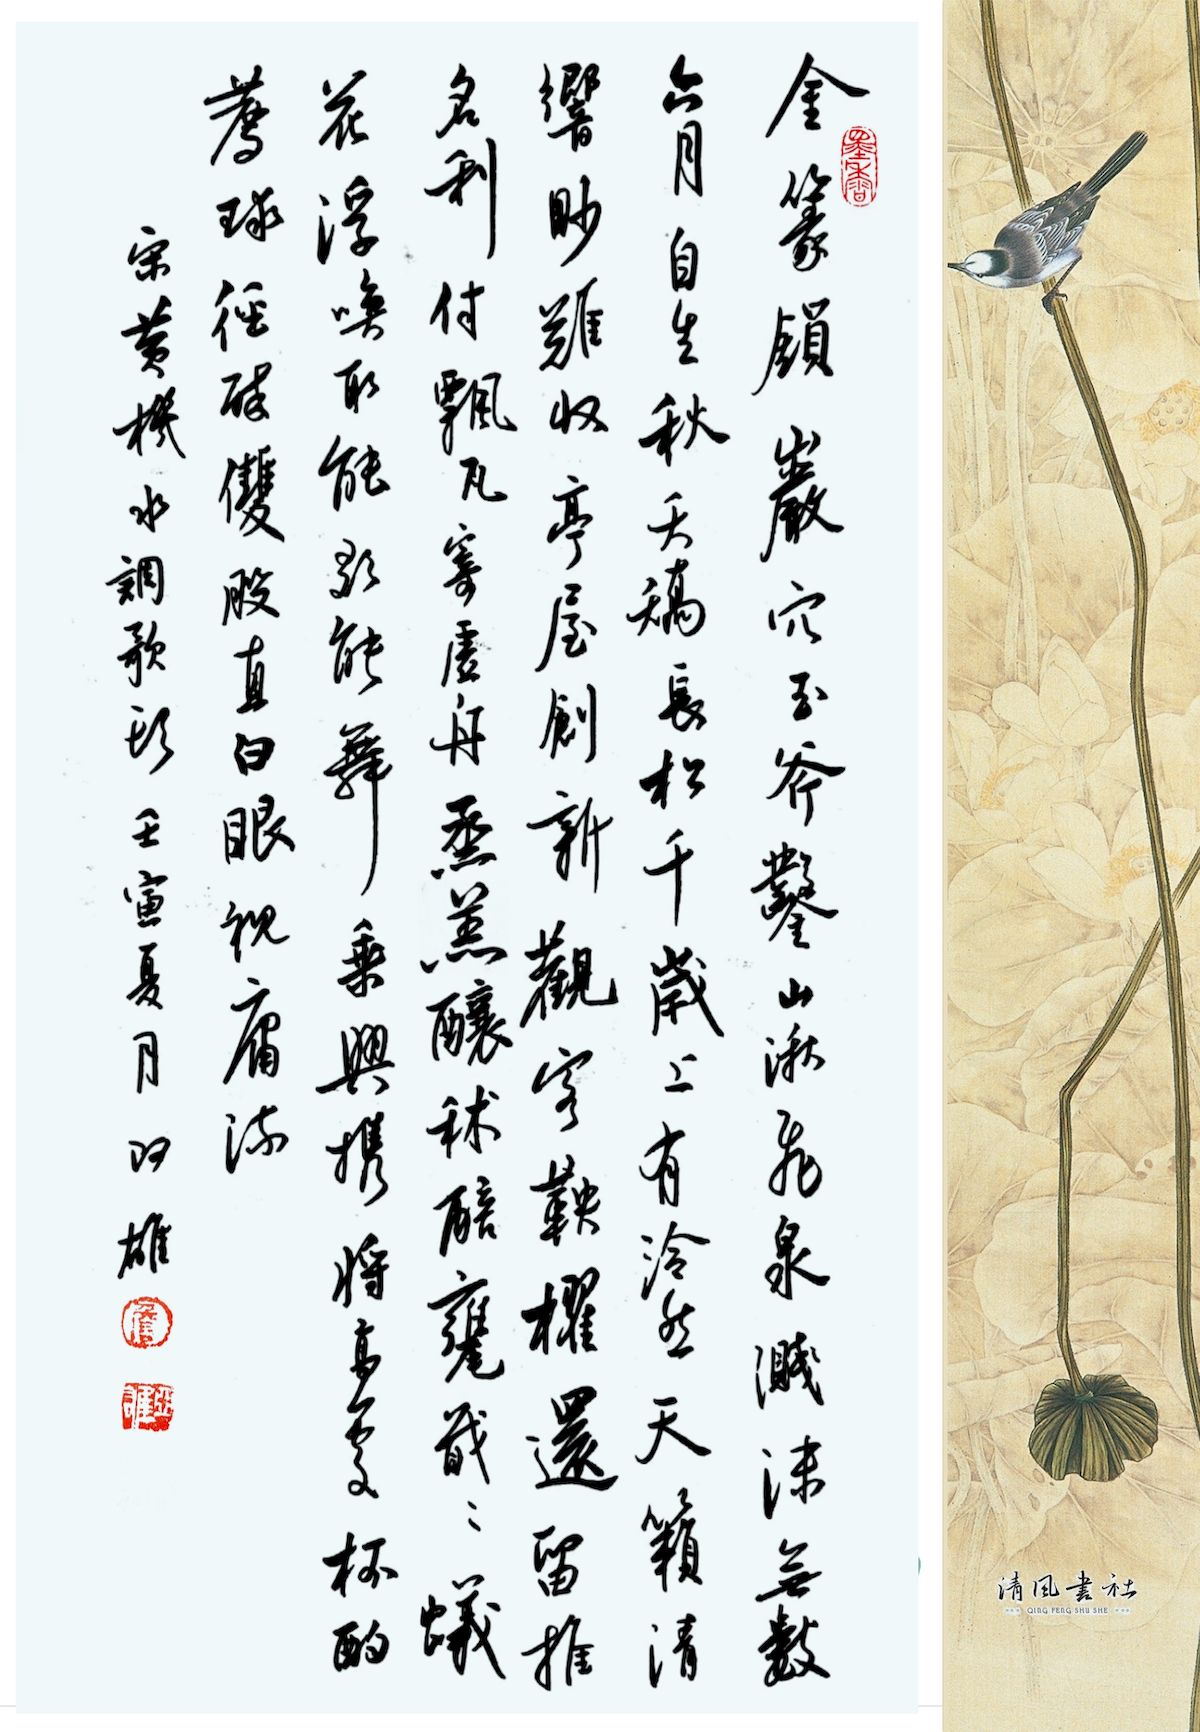 金篆鎖巖穴玉斧鑿山湫飛泉濺沫無數
墨香
六月自生秋夭矯長松千歲上有泠然天籟清
響眇難收亭屋創新觀客鞅櫂還留推
名利付飄瓦寄虛舟蒸羔釀秫醅甕戢〻蟻
花浮喚取能歌能舞乘興携將高處杯酌
薦球徑醉雙股直白眼視庸流
宋黃機水調歌頭壬寅夏月雄
清风書社
QING FENG SHU SHE